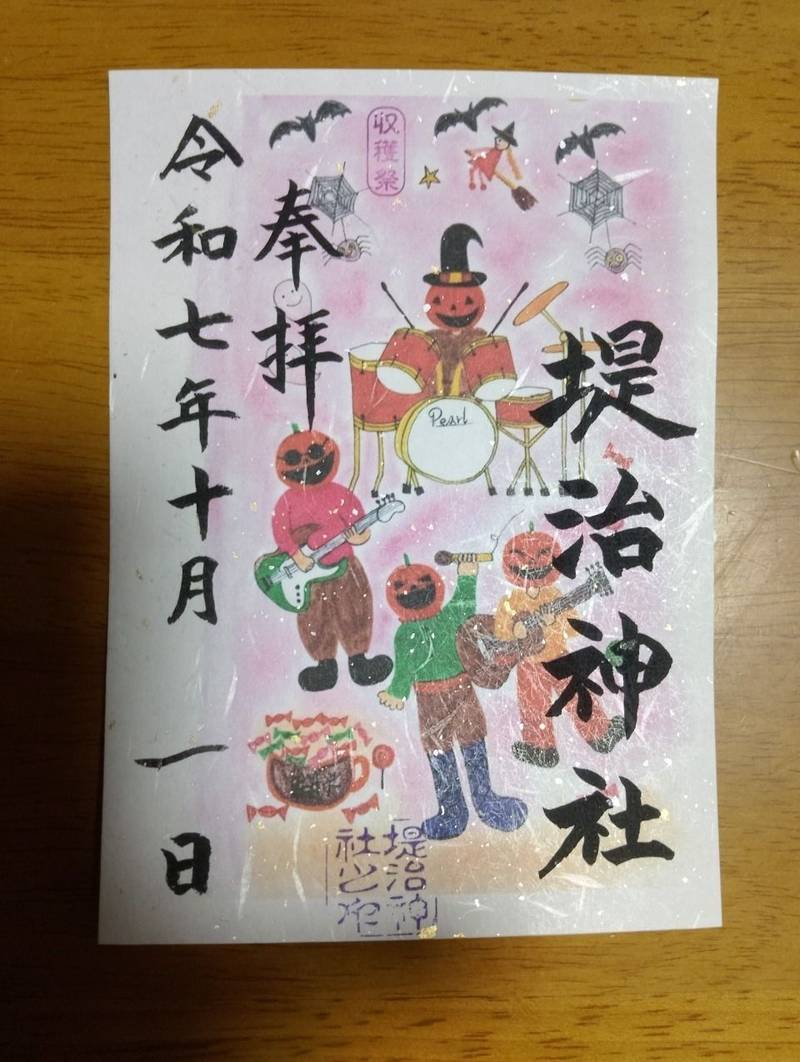 堤治神社
収穫祭
奉拝
令和七年十月一日
Pearl
堤治神
社之印